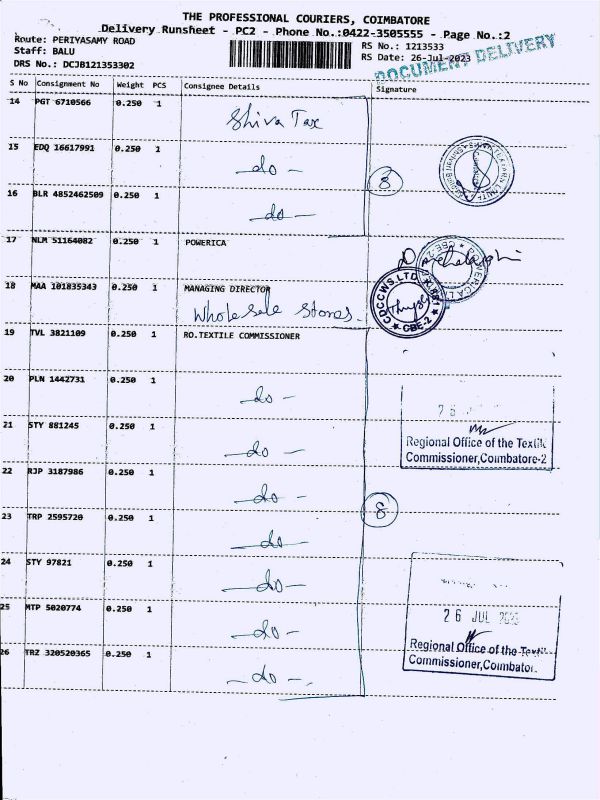 THE PROFESSIONAL COURIERS, COIMBATORE
Delivery Runsheet - PC2 - Phone No.:0422-3505555 - Page No.:2
Route: PERIYASAMY ROAD
RS No.: 1213533
Staff: BALU
RS Date: 26-Jul-2023
DRS No.: DCJB121353302
DOCUMENT DELIVERY
S No Consignment No Weight PCS Consignee Details Signature
14 PGT 6710566 0.250 1
Shiva Tax
15 EDQ 16617991 0.250 1
-do-
3
16 BLR 4852462509 0.250 1
-do-
17 NLM 51164082 0.250 1 POWERICA
18 MAA 101835343 0.250 1 MANAGING DIRECTOR
Wholesale Stores.
CDCCWS.LTD.
CBE-2
19 TVL 3821109 0.250 1 RO.TEXTILE COMMISSIONER
20 PLN 1442731 0.250 1
-do-
21 STY 881245 0.250 1
-do-
26
Regional Office of the Textile
Commissioner,Coimbatore-2
22 RJP 3187986 0.250 1
-do-
8
23 TRP 2595720 0.250 1
-do-
24 STY 97821 0.250 1
-do-
25 MTP 5020774 0.250 1
-do-
26 JUL 2023
26 TRZ 320520365 0.250 1
-do-.
Regional Office of the Textile
Commissioner,Coimbator